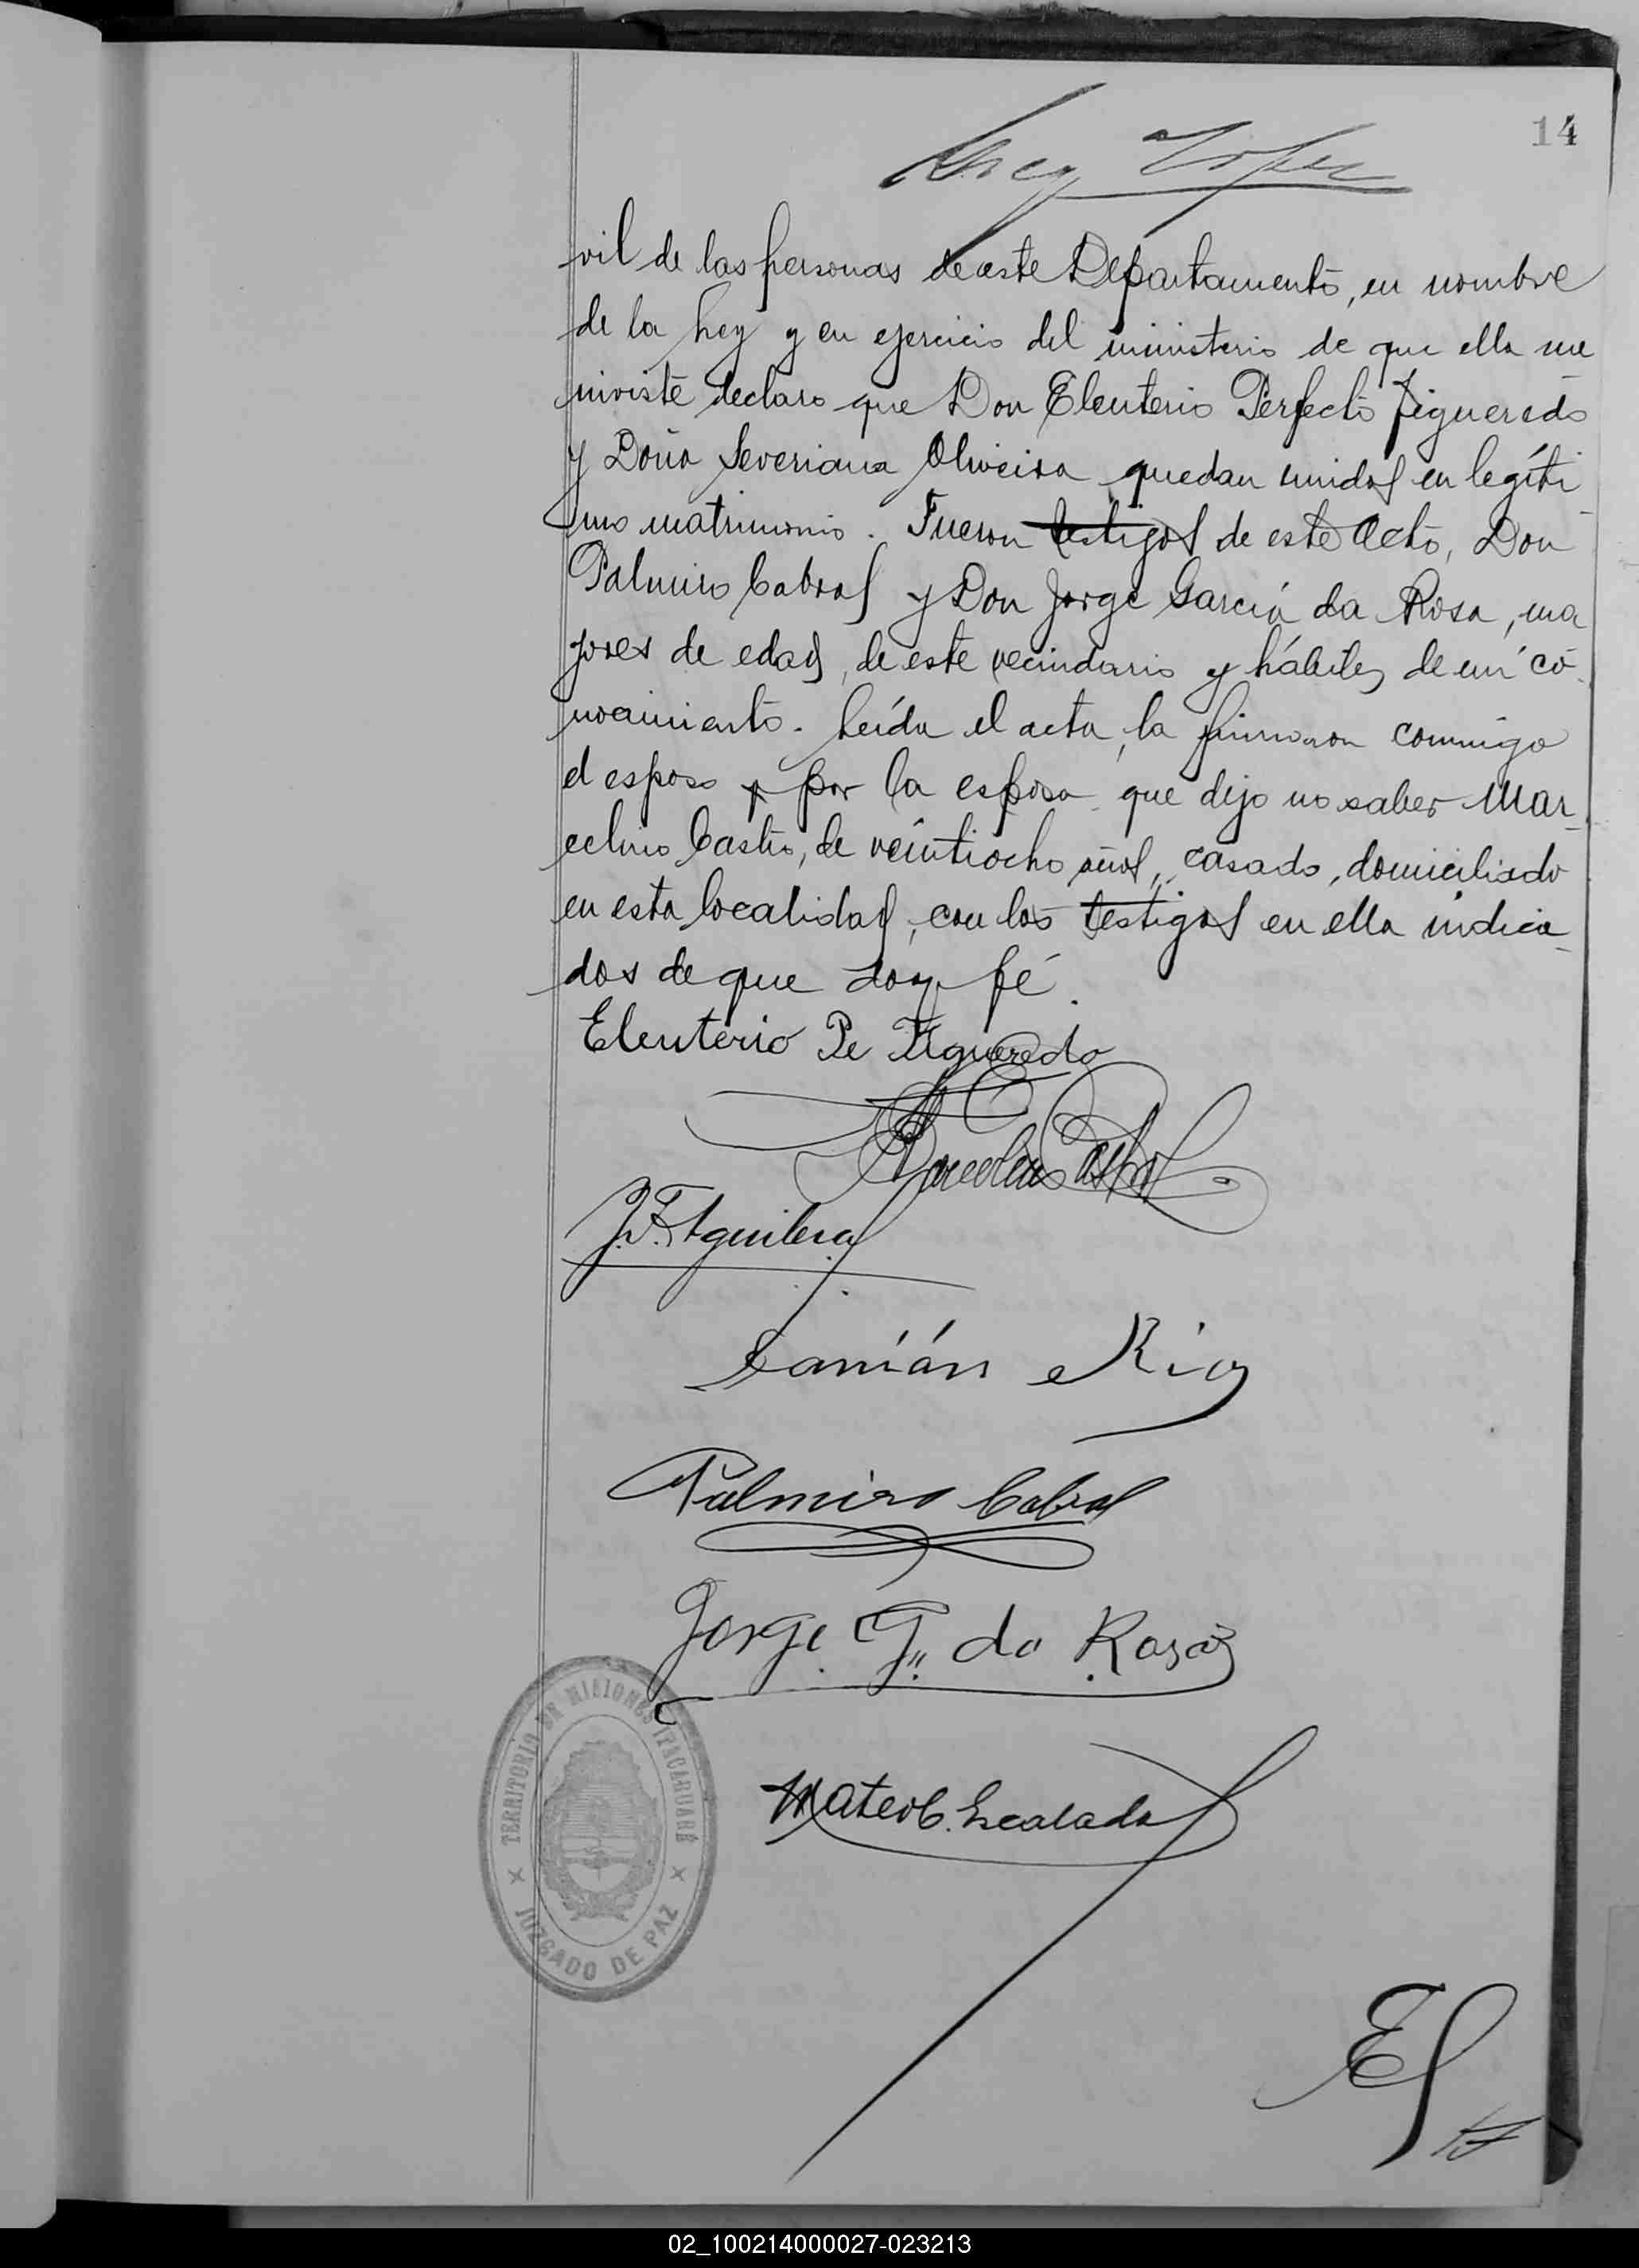 14
Lopez
vil de las personas de este Departamento, en nombre
de la Ley y en ejercicio del ministerio de que ella me
inviste declaro que Don Eleuterio Perfecto Figueredo
y Doña Severiana Oliveira quedan unidos en legíti
mo matrimonio. Fueron testigos de este acto, Don
Palmiro Cabral y Don Jorge García da Rosa, ma
yores de edad, de este vecindario y hábiles de mi co-
nocimiento. Leída el acta, la firmaron conmigo
el esposo y por la esposa que dijo no saber Mar-
celino Castro, de veintiocho años, casado, domiciliado
en esta localidad, con los testigos en ella indica-
dos de que doy fé.
Eleuterio Pe Figueredo
Marcelino Castro
J. F. Aguilera
Damián Ríos
Palmiro Cabral
Jorge G. da Rosa
TERRITORIO DE MISIONES ITACARUARÉ
JUZGADO DE PAZ
Mateo C. Escalada
02_100214000027-023213